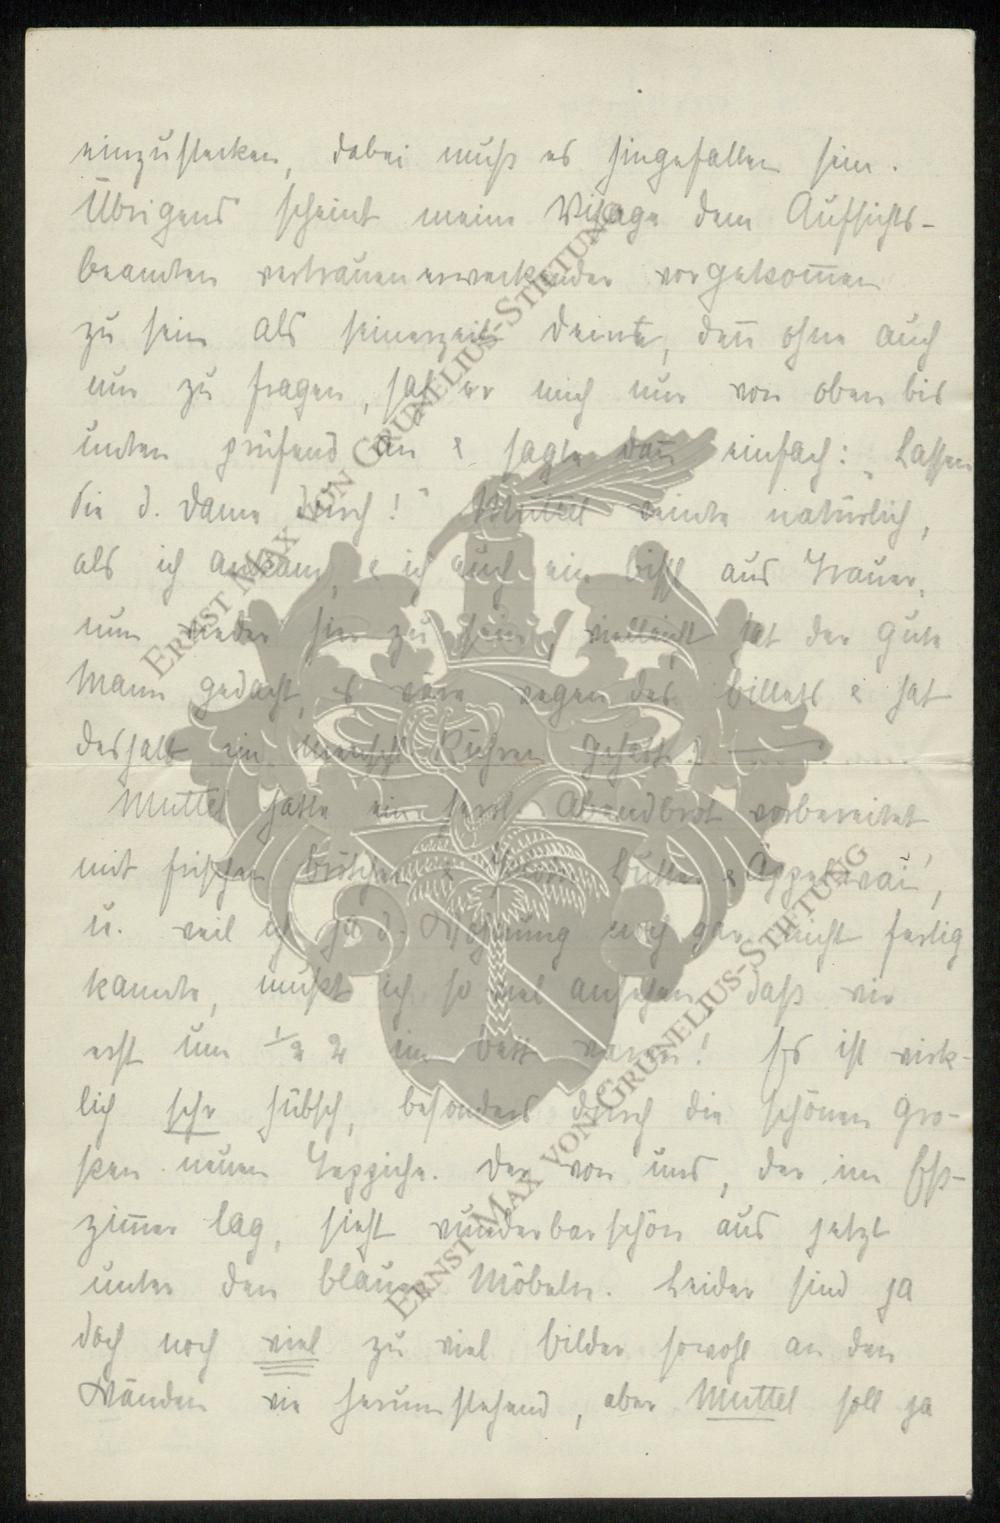 einzustecken, dabei muß es hingefallen sein.
Übrigens scheint meine Visage dem Aufsichts-
beamten vertrauenerweckender vorgekom̄en
zu sein als seinerzeit Deine, den̄ ohne auch
nur zu fragen, sah er mich nur von oben bis
unten prüfend an & sagte dan̄ einfach: „Lassen
Sie d. Dame durch!“ Muttel weinte natürlich,
als ich ankam, & ich auch ein bissl aus Trauer,
nun wieder hier zu sein, vielleicht hat der gute
Mann gedacht, es wäre wegen des Billets & hat
deshalb ein menschl. Rühren gehabt! —
Muttel hatte ein herrl. Abendbrot vorbereitet
mit frischen Brötchen & Butter & Äppelwai,
u. weil ich ja d. Wohnung noch gar nicht fertig
kannte, mußt ich so viel ansehen, daß wir
erst um ½ 2 im Bett waren! Es ist wirk-
lich sehr hübsch, besonders durch die schönen gro-
ßen neuen Teppiche. Der von uns, der im Eß-
zim̄er lag, sieht wunderbar schön aus jetzt
unter den blauen Möbeln. Leider sind ja
doch noch viel zu viel Bilder sowohl an den
Wänden wie herumstehend, aber Muttel soll ja
ERNST MAX VON GRUNELIUS-STIFTUNG
ERNST MAX VON GRUNELIUS-STIFTUNG